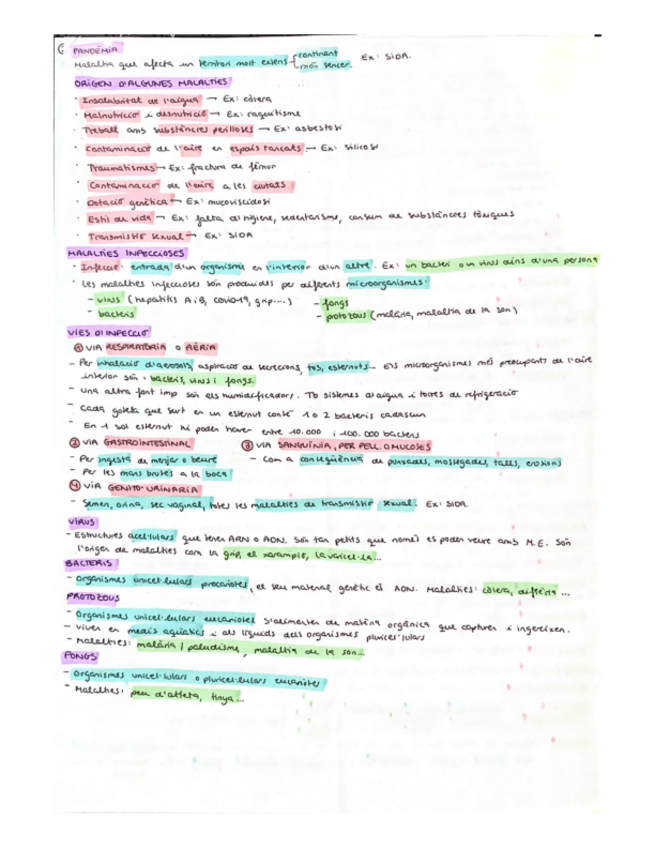 PANDÈMIA
Malaltia que afecta un territori molt extens continent Ex: SIDA.
món sencer.
ORIGEN D'ALGUNES MALALTIES
· Insalubritat de l'aigua → Ex: còlera
· Malnutrició i desnutrició → Ex: raquitisme
· Treball amb substàncies perilloses → Ex: asbestosi
· Contaminació de l'aire en espais tancats → Ex: silicosi
· Traumatismes → Ex: fractura de fèmur
· Contaminació de l'aire a les ciutats
· Dotació genètica → Ex: mucoviscidosi
· Estil de vida → Ex: falta d'higiene, sedentarisme, consum de substàncies tòxiques
· Transmissió sexual → Ex: SIDA
MALALTIES INFECCIOSES
· Infecció: entrada d'un organisme en l'interior d'un altre. Ex: un bacteri o un virus dins d'una persona
· Les malalties infeccioses són produïdes per diferents microorganismes:
- virus (hepatitis A i B, covid-19, grip....) - fongs
- bacteris - protozous (malària, malaltia de la son)
VIES D'INFECCIÓ
① VIA RESPIRATÒRIA O AÈRIA
- Per inhalació d'aerosols, aspiració de secrecions, tos, esternuts... Els microorganismes més preocupants de l'aire
interior són: bacteris, virus i fongs.
- Una altra font imp són els humidificadors. Tb sistemes d'aigua i torres de refrigeració
- Cada goteta que surt en un esternut conté 1 o 2 bacteris cadascun
- En 1 sol esternut hi poden haver entre 10.000 i 100.000 bacteris
② VIA GASTROINTESTINAL ③ VIA SANGUÍNIA, PER PELL O MUCOSES
- Per ingesta de menjar o beure - Com a conseqüència de punxades, mossegades, talls, erosions
- Per les mans brutes a la boca
④ VIA GENITO-URINARIA
- Semen, orina, sec vaginal, totes les malalties de transmissió sexual. Ex: SIDA.
VIRUS
- Estructures acel·lulars que tenen ARN o ADN. Són tan petits que només es poden veure amb M.E. Són
l'origen de malalties com la grip, el xarampió, la varicel·la...
BACTERIS
- Organismes unicel·lulars procariotes, el seu material genètic és ADN. Malalties: còlera, diftèria ...
PROTOZOUS
- Organismes unicel·lulars eucariotes s'alimenten de matèria orgànica que capturen i ingereixen.
- Viuen en medis aquàtics i als líquids dels organismes pluricel·lulars
- Malalties: malària / paludisme, malaltia de la son...
FONGS
- Organismes unicel·lulars o pluricel·lulars eucariotes
- Malalties: peu d'atleta, tinya...